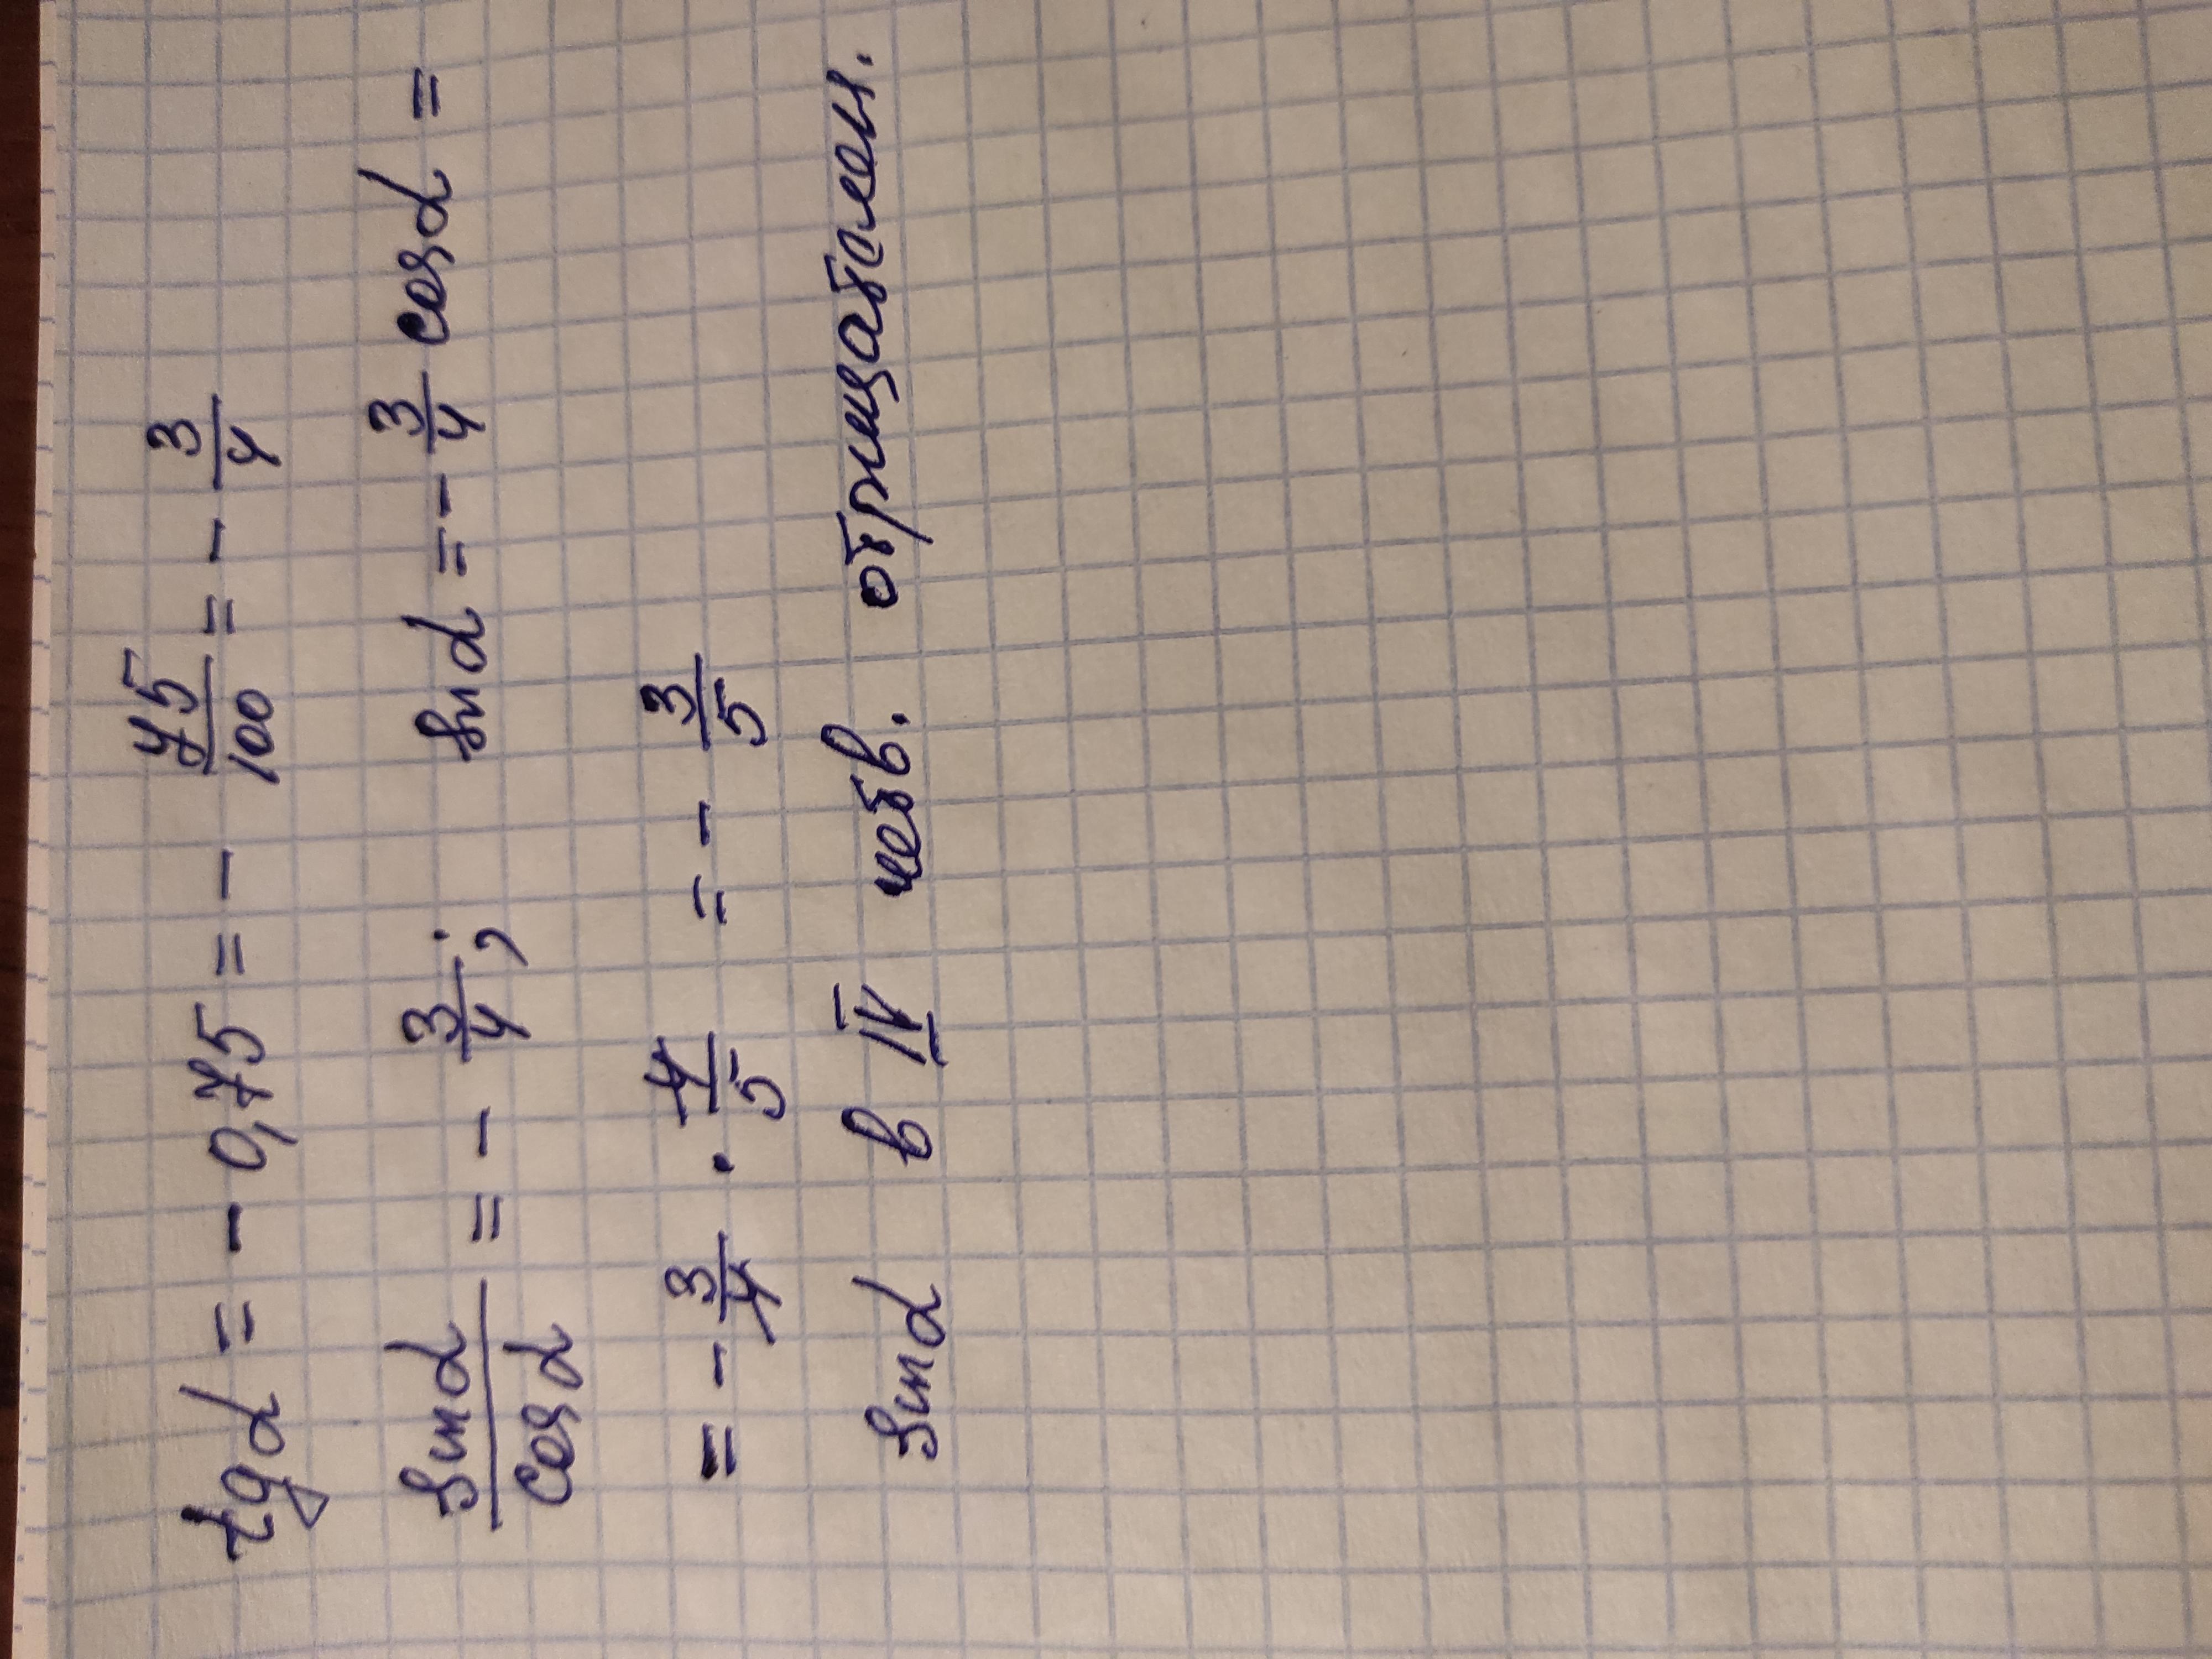 tgα = - 0,75 = - 75/100 = - 3/4
sinα/cosα = - 3/4; sinα = - 3/4 cosα =
= - 3/4 · 4/5 = - 3/5
sinα в IV четв. отрицателен.